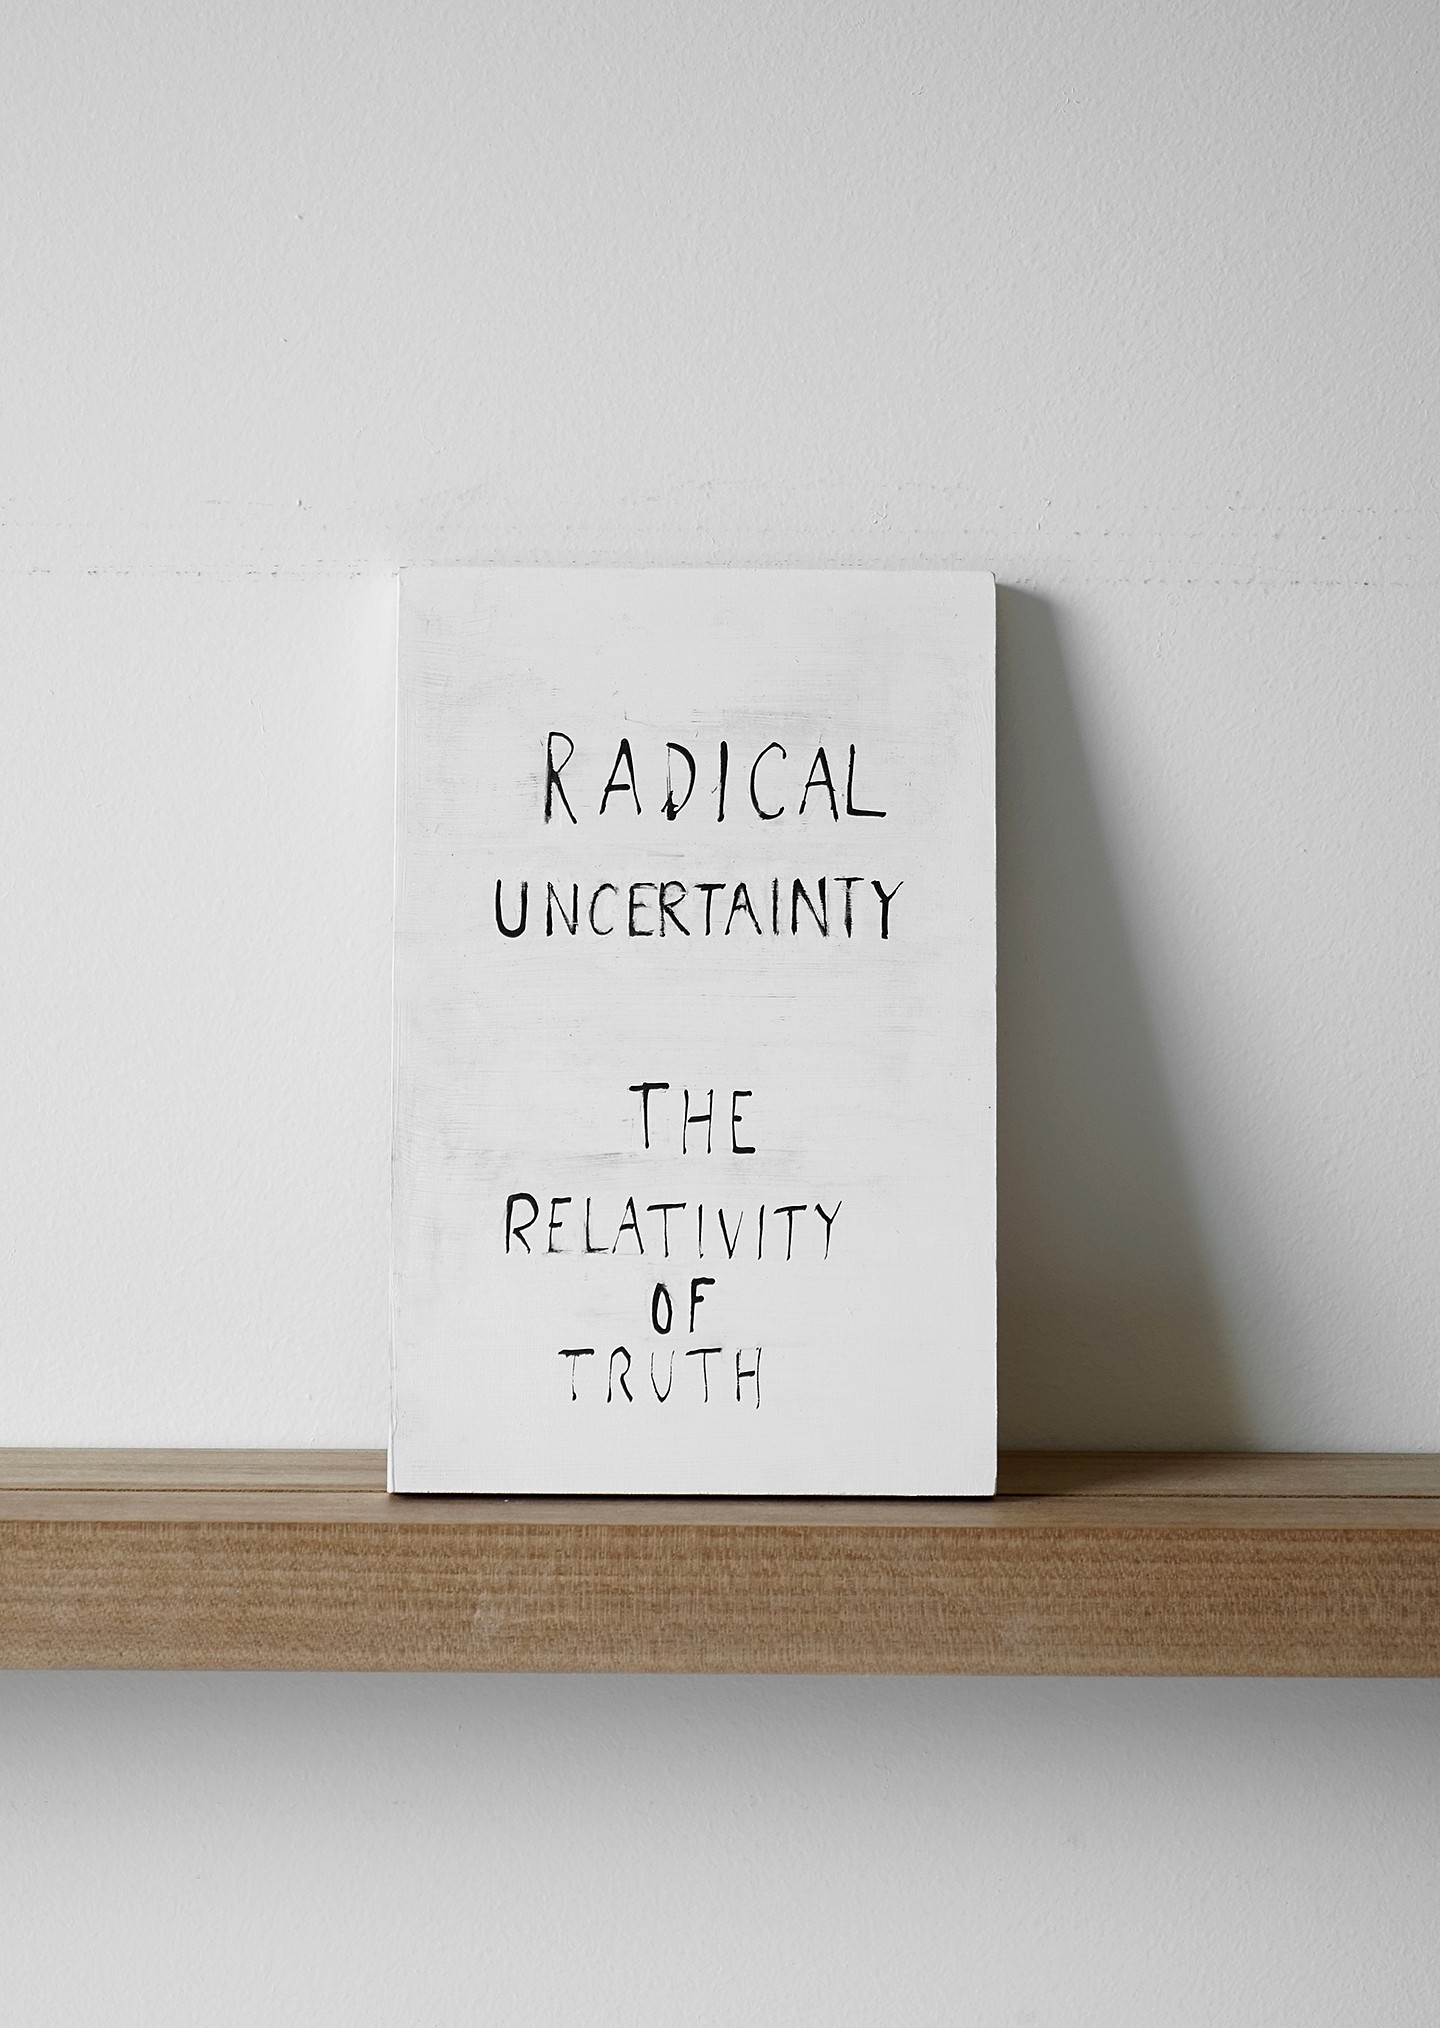 RADICAL
UNCERTAINTY
THE
RELATIVITY
OF
TRUTH